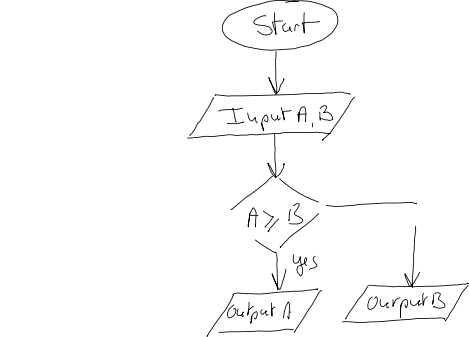 Start
Input A, B
A ⩾ B
yes
output A
Output B